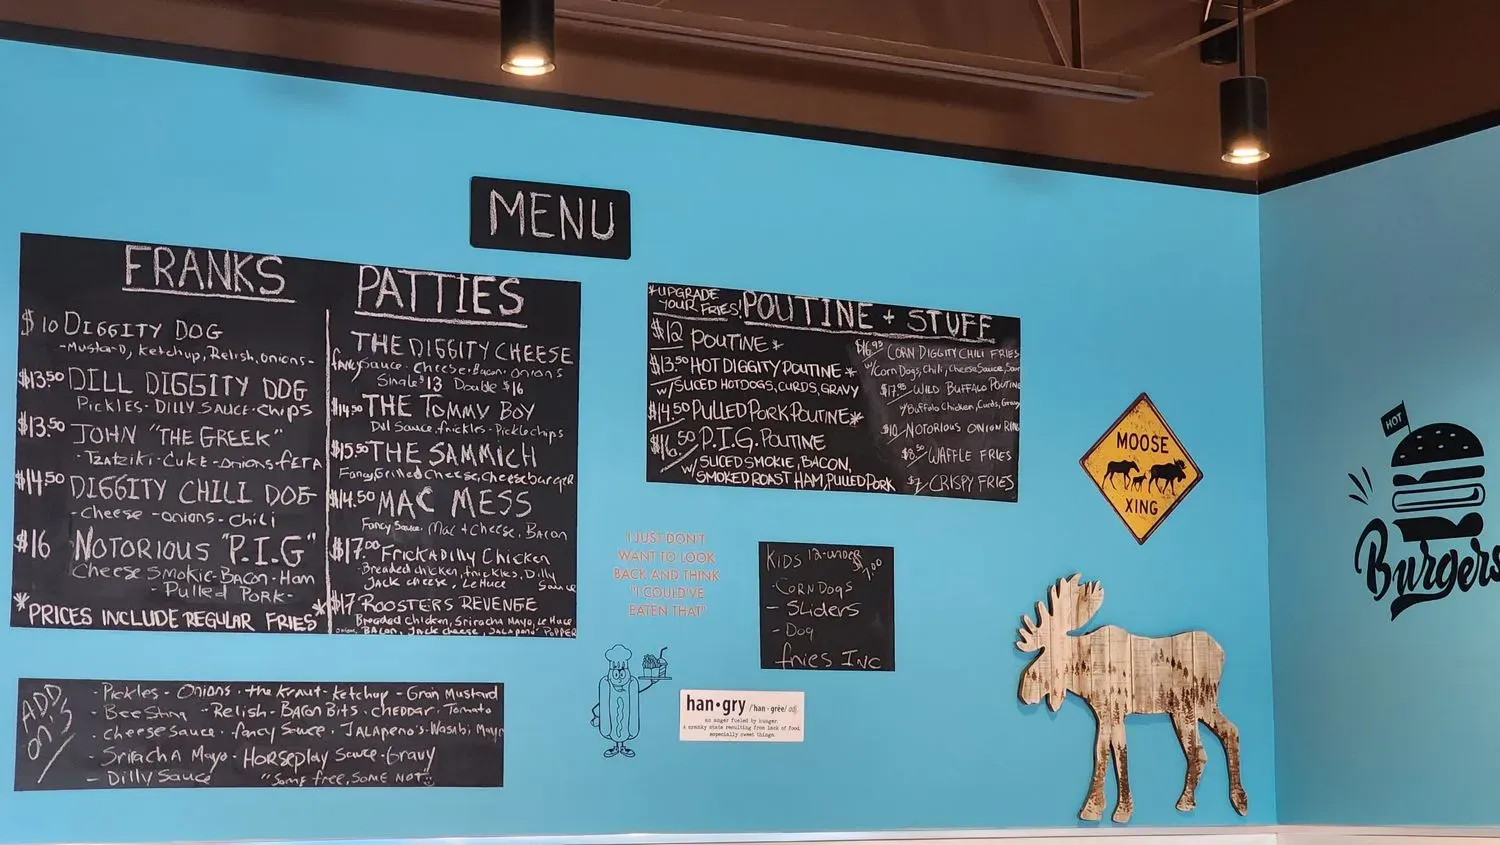 MENU
FRANKS
$10 DIGGITY DOG
-Mustard, Ketchup, Relish, onions-
$13.50 DILL DIGGITY DOG
Pickles - DILLY SAUCE - chips
$13.50 JOHN "THE GREEK"
- TZATZIKI - CUKE - onions - fETA
$14.50 DIGGITY CHILI DOG
- cheese - onions - chili
$16 NOTORIOUS "P.I.G"
Cheese Smokie - Bacon - Ham
- Pulled Pork -
*PRICES INCLUDE REGULAR FRIES*
PATTIES
THE DIGGITY CHEESE
fancy Sauce - Cheese - Bacon - onions
Single $13 Double $16
$14.50 THE TOMMY BOY
Dill Sauce, frickles - Pickle chips
$15.50 THE SAMMICH
Fancy Grilled Cheese, Cheeseburger
$14.50 MAC MESS
Fancy Sauce, Mac + Cheese, Bacon
$17.00 FRICKADILLY CHICKEN
- Breaded chicken, frickles, Dilly
Jack cheese, Lettuce Sauce
$17 ROOSTERS REVENGE
Breaded Chicken, Sriracha Mayo, Lettuce
onions, BACON, Jack cheese, JALAPENO POPPER
*UPGRADE
YOUR FRIES!
POUTINE + STUFF
$12 POUTINE *
$13.50 HOT DIGGITY POUTINE *
w/SLICED HOTDOGS, CURDS, GRAVY
$14.50 PULLED PORK POUTINE *
$16.50 P.I.G. POUTINE
w/ SLICED SMOKIE, BACON,
SMOKED ROAST HAM, PULLED PORK
$16.95 CORN DIGGITY CHILI FRIES
w/Corn Dogs, Chili, Cheese Sauce, Sour
$17.95 WILD BUFFALO POUTINE
w/Buffalo Chicken, Curds, Gravy
$10 NOTORIOUS ONION RING
$8.50 WAFFLE FRIES
$7 CRISPY FRIES
I JUST DON'T
WANT TO LOOK
BACK AND THINK
"I COULD'VE
EATEN THAT"
KIDS 12-under
$7.00
- CORN DOGS
- SLiders
- Dog
fries Inc
ADD
on's
- Pickles - Onions - the kraut - ketchup - Grain Mustard
- Bee Sting - Relish - BACON BITS - CHEDDAR - Tomato
- cheese sauce - fancy sauce - JALAPENO'S - Wasabi Mayo
- SriracHA Mayo - HORSEPLAY SAUCE - GrAVY
- DILLY SAUCE "Some free, SOME NOT"
han•gry /han - gree/ adj.
an anger fueled by hunger.
a cranky state resulting from lack of food,
especially sweet things.
MOOSE
XING
HOT
Burgers